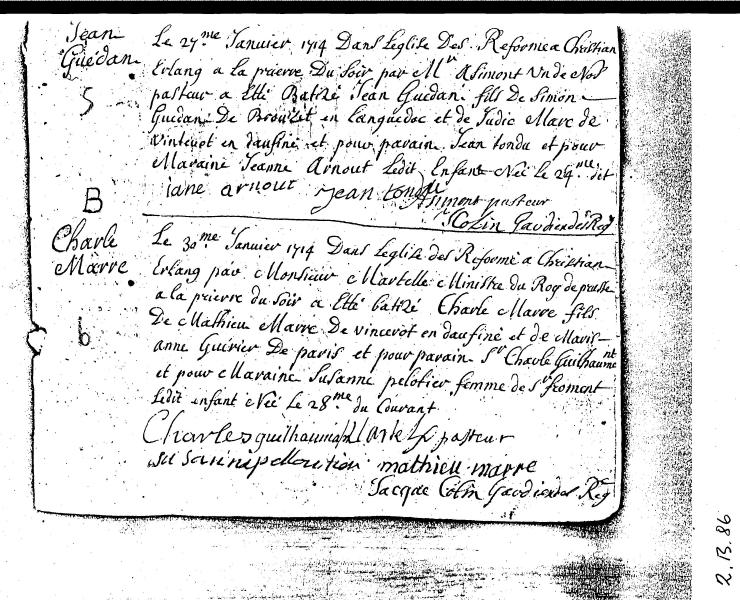 Jean
Guédan
5
Le 27.me Janvier 1714 Dans Leglise Des Reformé a Christian
Erlang a la prierre Du Soir par Mr Asimont Un de Nos
pasteur a Etté Batizé Jean Guedan fils De Simon
Guedan De Brouzet en Languedoc et de Judic Marc de
vinterot en daufiné et pour parain Jean tondu et pour
Maraine Jeanne Arnout Ledit Enfant Néé Le 24.me dit
iane arnout jean tondu Asimont pasteur
J Colin Gardien des Reg
B
Charle
Marre
6
Le 30.me Janvier 1714 Dans Leglise des Reformé a Christian
Erlang par Monsieur Martelle Ministre du Roy de prusse
a la prierre du Soir a Etté batizé Charle Marre fils
De Mathieu Marre De vincerot en daufiné et de Maris
anne Guirier De paris et pour parain Sr Charle Guilhaume
et pour Maraine Susanne pelotier femme de Sr froment
Ledit enfant Néé Le 28me du Courant
Charles guilhaumon pasteur
mathieu marre
Jacque Colin Gardien des Reg
2.13.86